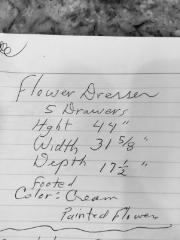 Flower Dresser
5 Drawers
Hght 44"
Width 31 5/8"
Depth 17 1/2"
footed
Color: Cream
Painted flower